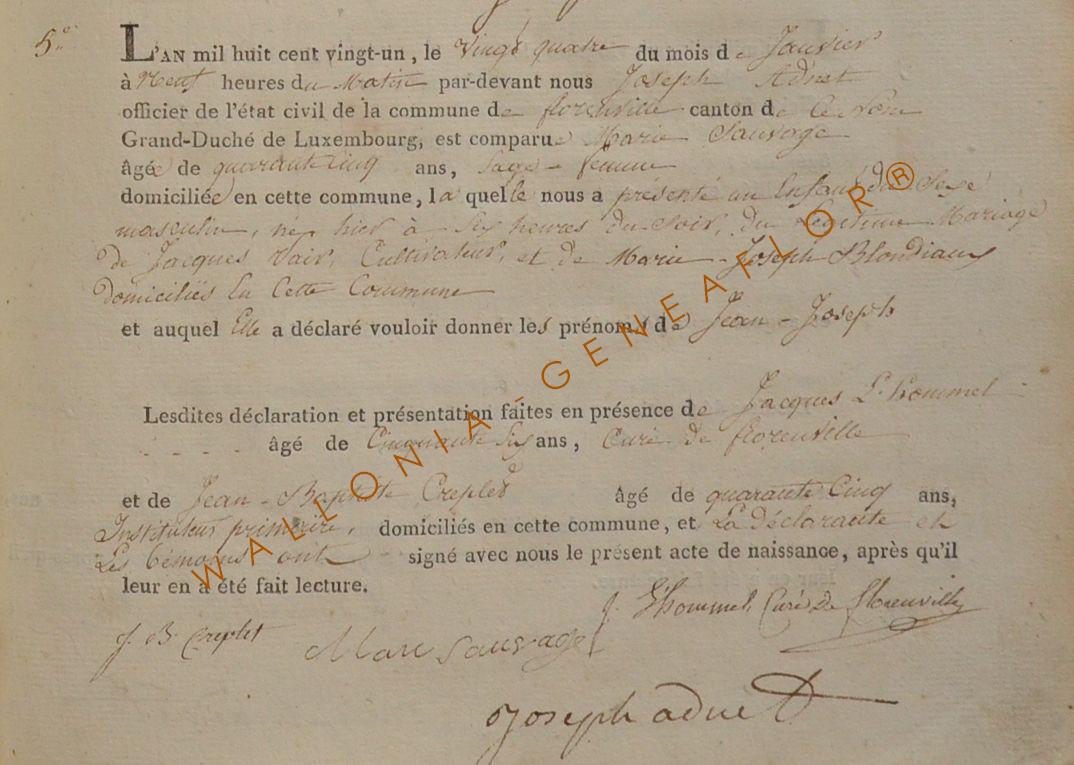 5.º
L'AN mil huit cent vingt-un, le Vingt quatre du mois de Janvier
à Neuf heures du Matin par-devant nous Joseph Adnet
officier de l'état civil de la commune de florenville canton de
Grand-Duché de Luxembourg, est comparue Marie Sauvage
âgée de quarante cinq ans, Sage-femme
domiciliée en cette commune, la quelle nous a présenté un Enfant du Sexe
masculin, né hier à Six heures du Soir, du Légitime Mariage
de Jacques Vair, Cultivateur, et de Marie-Joseph Blondiaux
domiciliés En Cette Commune
et auquel Elle a déclaré vouloir donner les prénoms de Jean-Joseph
Lesdites déclaration et présentation faites en présence de Jacques L'hommel
âgé de Cinquante Six ans, Curé de florenville
et de Jean-Baptiste Creplet âgé de quarante Cinq ans,
Instituteur primaire, domiciliés en cette commune, et La déclarante et
Les témoins ont signé avec nous le présent acte de naissance, après qu'il
leur en a été fait lecture.
J. L'hommel Curé de florenville
J. B. Creplet
Marie Sauvage
Joseph adnet
WALLONIA - GENEAFLOR®